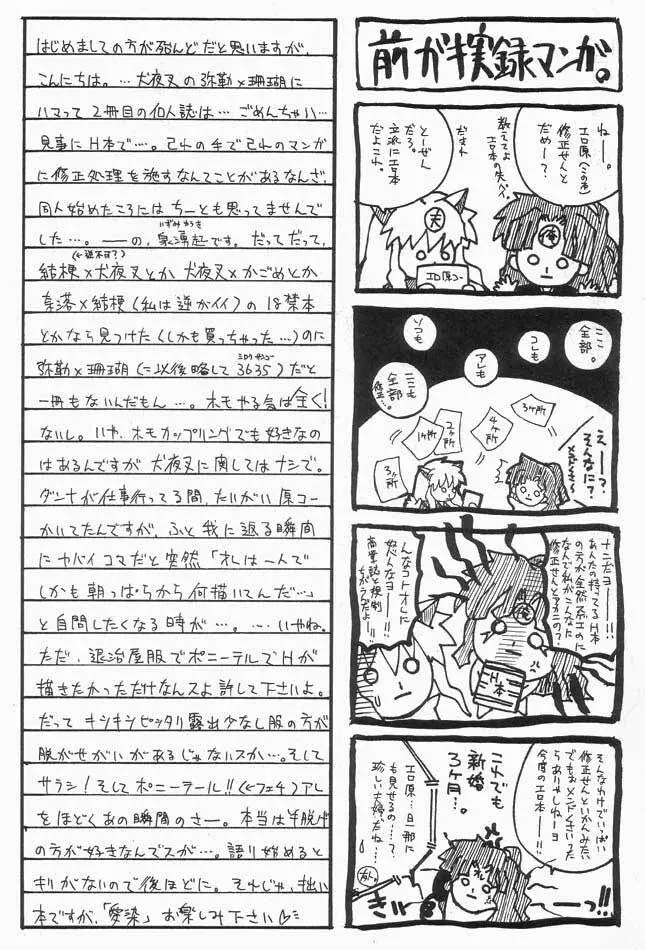 前がキ実録マンガ。
はじめましての方が殆んどだと思いますが、
こんにちは。…犬夜叉の弥勒×珊瑚に
ハマって2冊目の同人誌は…ごめんちゃい…
見事にH本で…。己れの手で己れのマンガ
に修正処理を施すなんてことがあるなんざ、
同人始めたころにはちーとも思ってませんで
した…。――の、泉湧起です。だってだって、
いずみゆうき
(←逆不可?)
桔梗×犬夜叉とか犬夜叉×かごめとか
奈落×桔梗(私は逆がイイ)の18禁本
とかなら見つけた(しかも買っちゃった…)のに
弥勒×珊瑚(に以後略して3635)だと
ミロクサンゴ
一冊もないんだもん…。ホモやる気は全く!
ないし。いや、ホモカップリングでも好きなの
はあるんですが犬夜叉に関してはナシで。
ダンナが仕事行ってる間、だいがい原コー
かいてたんですが、ふと我に返る瞬間
にヤバイコマだと突然「オレは一人で
しかも朝っぱらから何描いてんだ…」
と自問したくなる時が…。…いやね。
ただ、退治屋服でポニーテルでHが
描きたかっただけなんスよ許して下さいよ。
だってキシキシピッタリ露出少なし服の方が
脱がせがいがあるじゃないスか…。そして
サラシ!そしてポニーテール!!(←フェチ)アレ
をほどくあの瞬間のさー。本当は半脱げ
の方が好きなんでスが…。語り始めると
キリがないので後ほどに。それじゃ、拙い
本ですが、「愛染」お楽しみ下さい
ねー。
エロ原(この本)
修正せんと
だめー?
教えてよ
エロ本の先パイ。
だまれ
とーぜん
だろ。
立派にエロ本
だよこれ。
俺
夫
エロ原コー
ここ
全部。
コレも
アレも
ソコも
ここも
全部…
修正…。
3ヶ所
4ヶ所
2ヶ所
1ヶ所
3ヶ所
えーっ?
そんなに?
メンドくさー
ナニだヨ――!!
あんたの持ってるH本
の方が全然エロエロに
なんで私がこんなに
修正せんとアカンの?
H本
俺
んなコトオレに
怒んなヨ――!!
商業誌と規制
ちがうんだよー!!
そんなわけでいっぱい
修正せんといかんみたい
でもおメンドくさいったら
ありゃしねーヨ
今度のエロ本――!!
これでも
新婚
3ヶ月…。
エロ原…旦那に
も見せるの…?
珍しい夫婦だね…
友人
ギー
ーっ!!